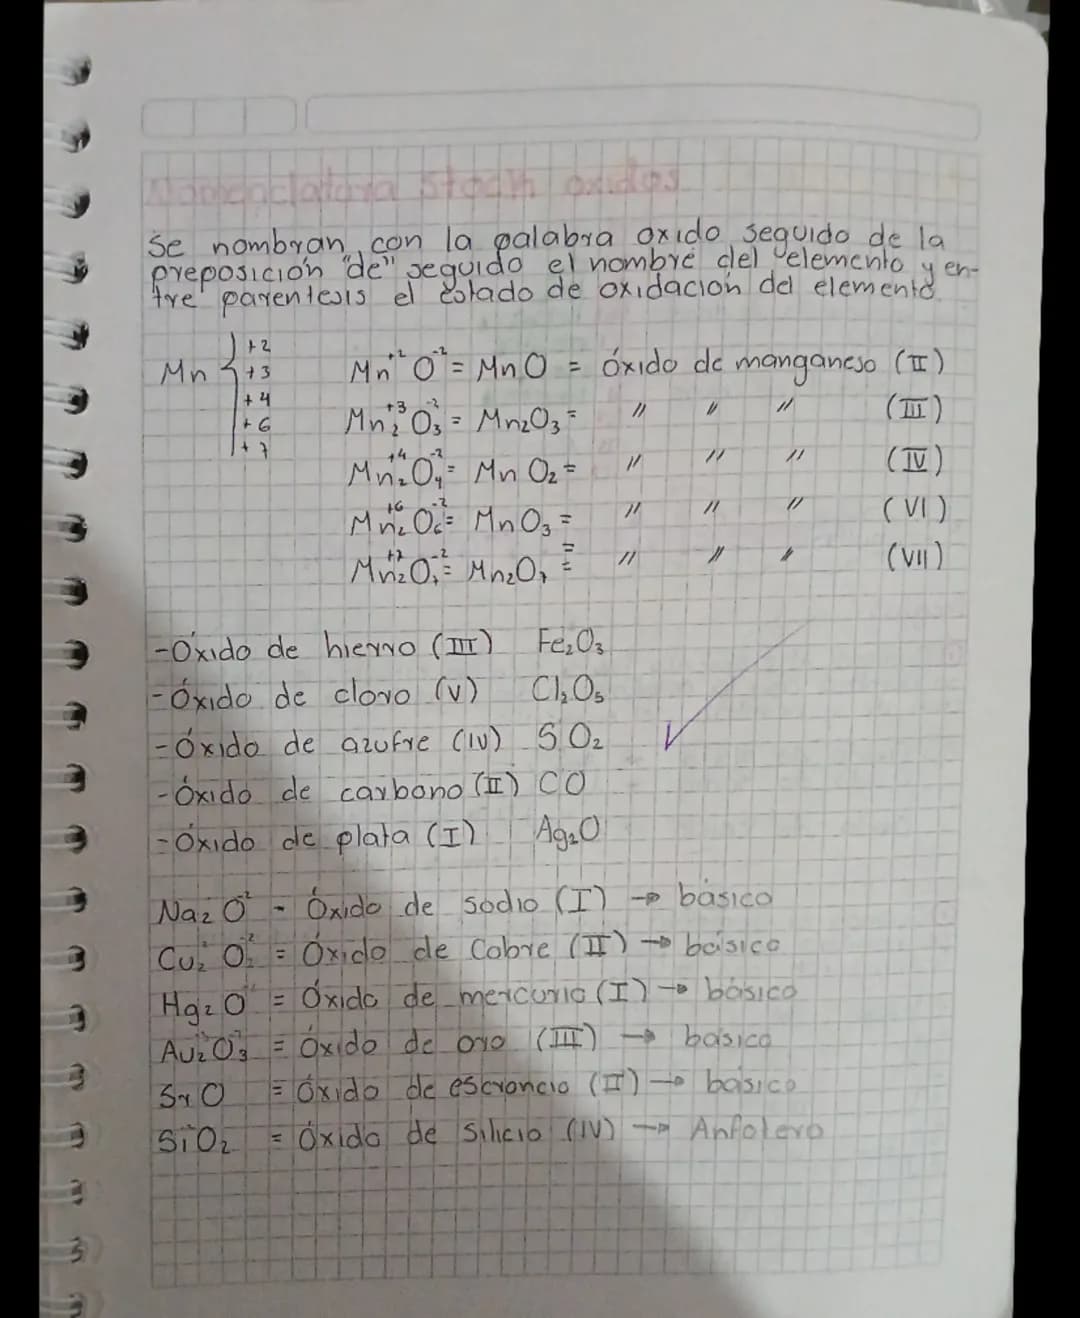 Nomenclatura Stock oxidos
Se nombran con la palabra oxido seguido de la
preposición "de" seguido el nombre del elemento y en-
tre parentesis el estado de oxidación del elemento
Mn { +2 +3 +4 +6 +7
Mn⁺² O⁻² = MnO = óxido de manganeso (II)
Mn₂⁺³ O₃⁻² = Mn₂O₃ = " " " (III)
Mn₂⁺⁴ O₄⁻² = MnO₂ = " " " (IV)
Mn₂⁺⁶ O₆⁻² = MnO₃ = " " " (VI)
Mn₂⁺⁷ O₇⁻² = Mn₂O₇ = " " " (VII)
-Óxido de hierro (III) Fe₂O₃
-Óxido de cloro (V) Cl₂O₅
-Óxido de azufre (IV) SO₂
-Óxido de carbono (II) CO
-Óxido de plata (I) Ag₂O
Na₂O⁻² - Óxido de sodio (I) → básico
Cu₂² O₂⁻² = Óxido de Cobre (II) → básico
Hg₂O = Óxido de mercurio (I) → básico
Au₂O₃ = Óxido de oro (III) → basico
SrO = Óxido de estroncio (II) → basico
SiO₂ = Óxido de Silicio (IV) → Anfotero